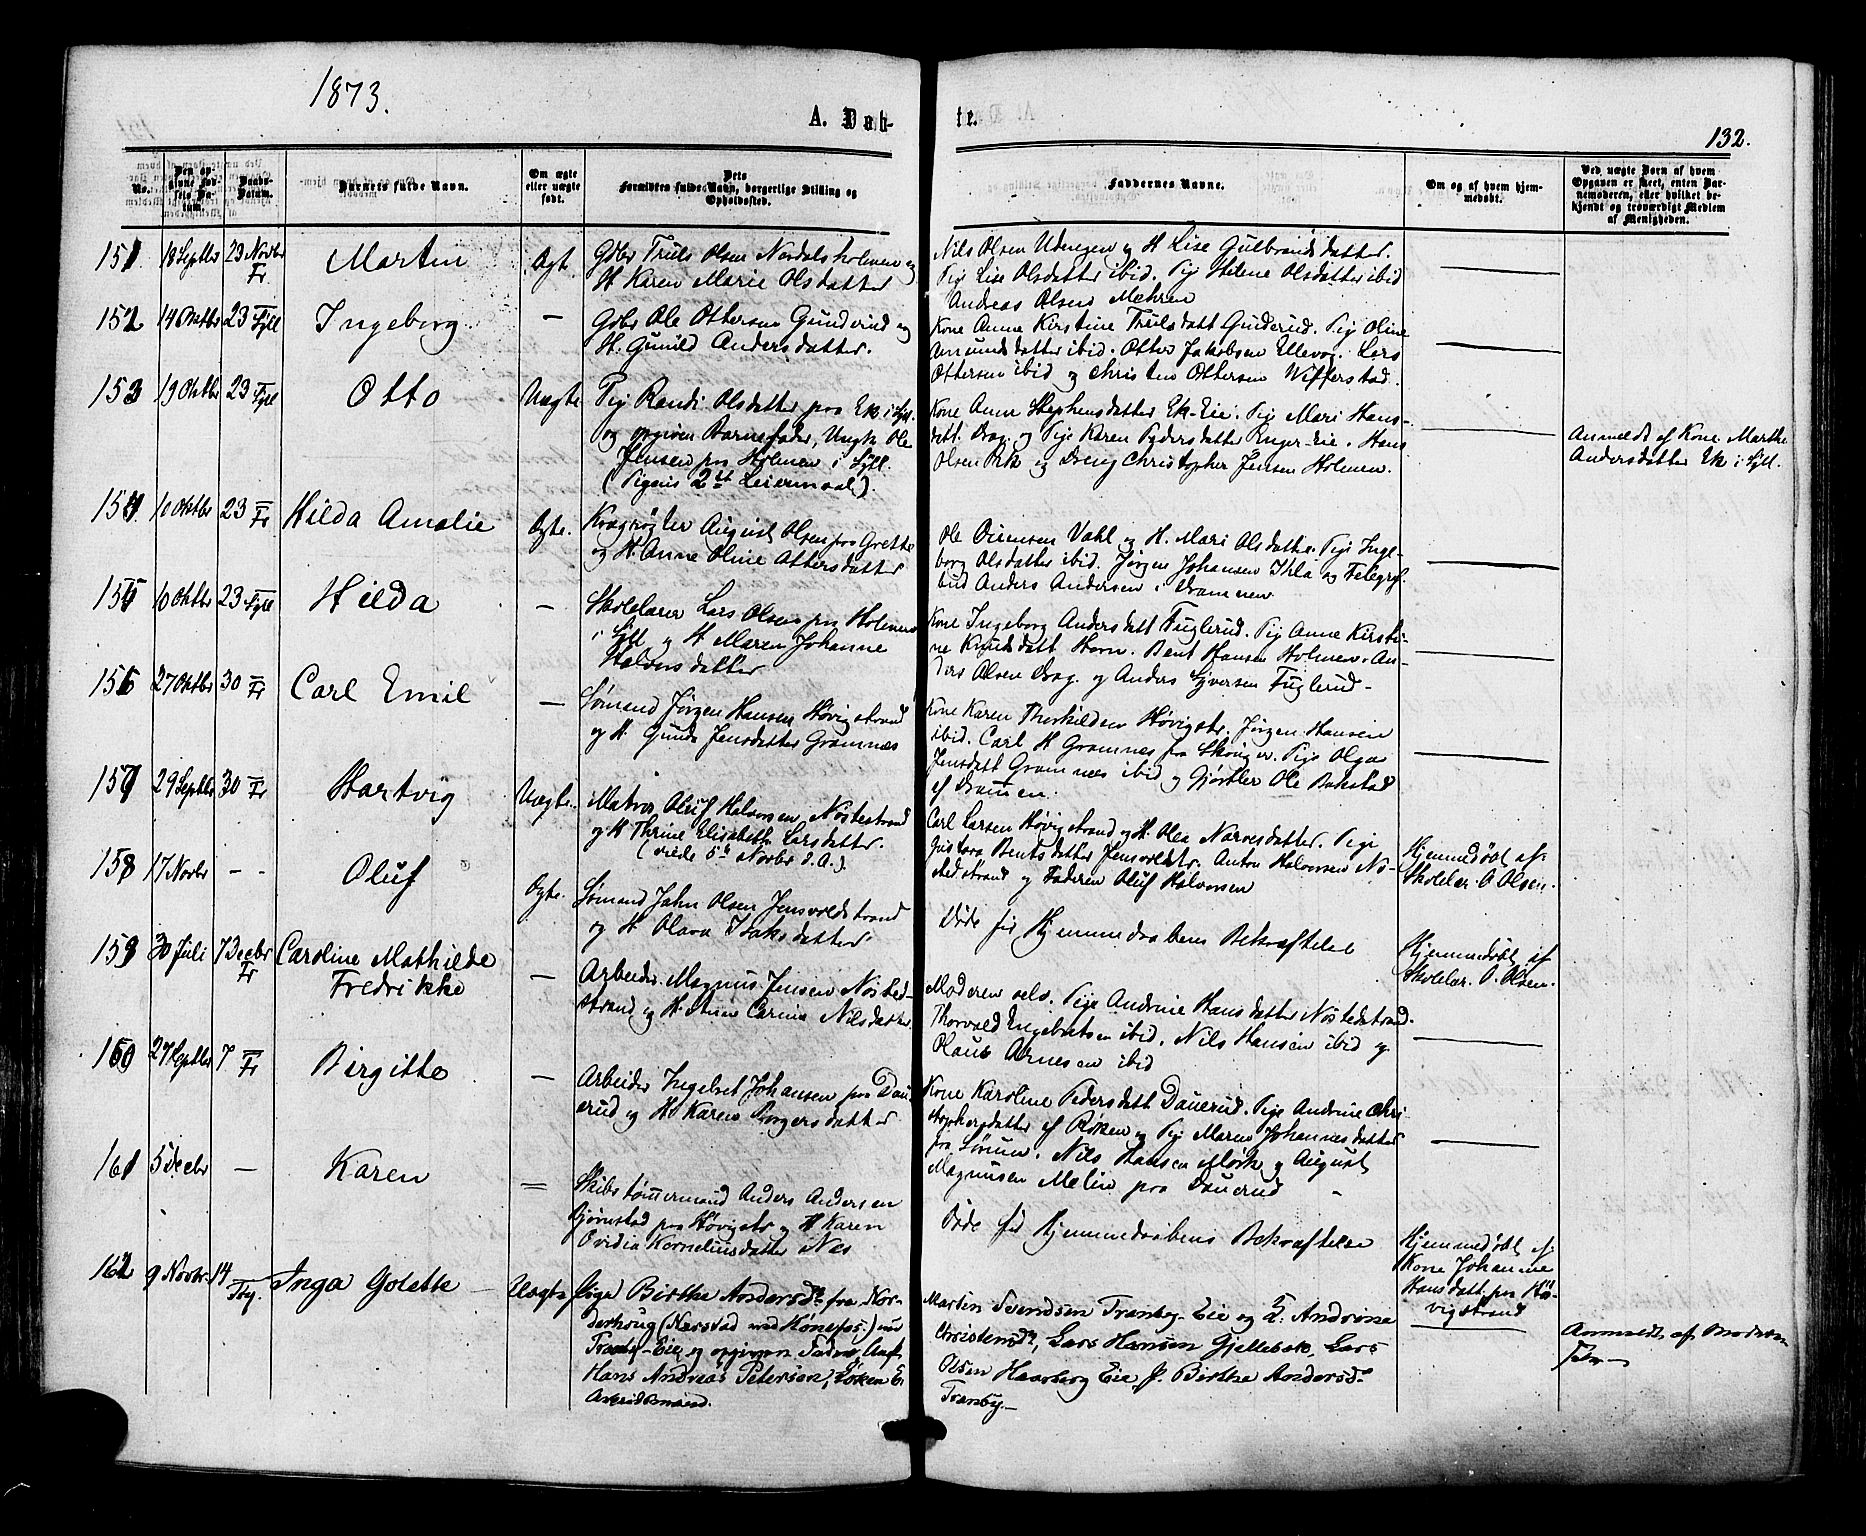 1873.
A. Døb-
te.
132.
No.
Den op-
givne Fød-
sels Da-
tum.
Daabs-
Datum.
Barnets fulde Navn.
Om ægte
eller uægte
født.
Dets
Forældres fulde Navn, borgerlige Stilling og
Opholdssted.
Faddernes Navne.
Om og af hvem hjem-
medøbt.
Ved uægte Børn af hvem
Opgaven er skeet, enten Bar-
nemoderen, eller hvilket be-
kjendt og troværdigt Medlem
af Menigheden.
151. 18 Septbr 23 Novbr Fr. Martin Ægt.
Gdbr Truls Olsen Nordalsholmen og
H. Karen Marie Olsdatter
Nils Olsen Udengen og H. Lise Gulbrandsdatter.
Pige Lise Olsdatter ibid. Pige Helene Olsdatter ibid
Andreas Olsen Mehren
152 14 Oktbr 23 Syll Ingeborg —
Gdbr Ole Ottersen Gunderud og
H. Gunild Andersdatter.
Kone Anne Kirstine Trulsdatt Gunderud. Pige Oline
Amundsdatter ibid. Otter Jakobsen Ellevog. Lars
Ottersen ibid og Christen Ottersen Wifferstad.
153 19 Oktbr 23 Syll Otto Uægte
Pige Randi Olsdatter paa Ek i Syl.
og opgiven Barnefader, Ungk. Ole
Jensen paa Holmen i Syll.
(Pigens 2det Leiermaal).
Kone Anne Stephensdatter Ek-Eie. Pige Mari Hans-
datt. Bag. og Pige Karen Pedersdatter Enger-Eie. Hans
Olsen Ek og Dreng Christopher Jensen Holmen.
Anmeldt af Kone Marthe
Andersdatter Ek i Syll.
154. 10 Oktbr 23 Fr Hilda Amalie Ægte.
August Olsen paa Grette
og H. Anne Oline Ottersdatter
Ole Vahl og H. Mari Olsdatter. Pige Inge-
borg Olsdatter ibid. Jørgen Johansen og Telegraf
bud Anders Andersen i Drammen
155 10 Oktbr 23 Syll Hilda —
Skolelærer Lars Olsen paa Holmen
i Syll og H. Maren Johanne
Halvorsdatter
Kone Ingeborg Andersdatt Fuglerud. Pige Anne Kirsti-
ne Knudsdatt Horn. Bent Hansen Holmen. An-
ders Olsen Bag. og Anders Syversen Fuglerud.
156 27 Oktbr 30 Fr Carl Emil —
Sømand Jørgen Hansen Høvigstrand
og H. Gunda Jensdatter Gramnæs
Kone Karen Thorkildsen Høvigstr. Jørgen Hansen
ibid. Carl H. Gramnes fra Skouger. Pige Olga
Jensdatt Gramnæs ibid og Gjørtler Ole Bakstad
af Drammen.
157 29 Septbr 30 Fr Hartvig Uægte.
Matros Oluf Halvorsen, Nøstestrand
og H. Thrine Elisabeth Larsdatter.
(viede 5d Novbr d. A.).
Carl Larsen Høvigstrand og H. Olea Narvesdatter. Pige
Gustava Bentsdatter Jensvoldstr. Anton Halvorsen Nø-
stedstrand og Faderen Oluf Halvorsen
Hjemmedøbt af
Skolelær. O. Olsen.
158 17 Novbr - - Oluf Ægte.
Sømand Jahn Olsen Jensvoldstrand
og H. Olava Isaksdatter
Døde før Hjemmedaabens Bekræftelse
Hjemmedøbt af
Skolelær. O. Olsen.
159 30 Juli 7 Decbr Fr Caroline Mathilde
Fredrikke —
Arbeider Magnus Jensen Nøsted-
strand og H. Anne Carine Nilsdatter
Moderen selv. Pige Andrine Hansdatter Nøstedstrand.
Thorvald Engebretsen ibid. Nils Hansen ibid og
Olaus Arnesen ibid
160 27 Septbr 7 Fr Birgitte —
Arbeider Ingebret Johansen paa Dau-
erud og H. Karen Borgersdatter
Kone Karoline Pedersdatt Dauerud. Pige Andrine Chri-
stophersdatter af Røken og Pige Maren Johannesdatter
fra Sørum. Nils Hansen Mørk og August
Magnusen Melin paa Dauerud
161 5 Decbr — Karen —
Skibstømmermand Anders Andersen
Bjørnstad paa Høvigstr og H. Karen
Ovidia Korneliusdatter Næs
Døde før Hjemmedaabens Bekræftelse
Hjemmedøbt af
Kone Johanne
Hansdatt paa Hø-
vigstrand
162 9 Novbr. 14 Tby. Inga Golette — Uægte
Pige Birthe Andersdr fra Nor-
derhoug (Narstad ved Hønefos) nu
Tranby-Eie og opgiven Fader, Ank.
Hans Andreas Petersen, Løken E.
Arbeidsmand.
Martin Svendsen Tranby-Eie og H. Andrine
Christensdr, Lars Hansen Gjellebæk, Lars
Olsen Haarberg Eie, P. Birthe Andersdr
Tranby.—
Anmeldt af Moderen
selv —